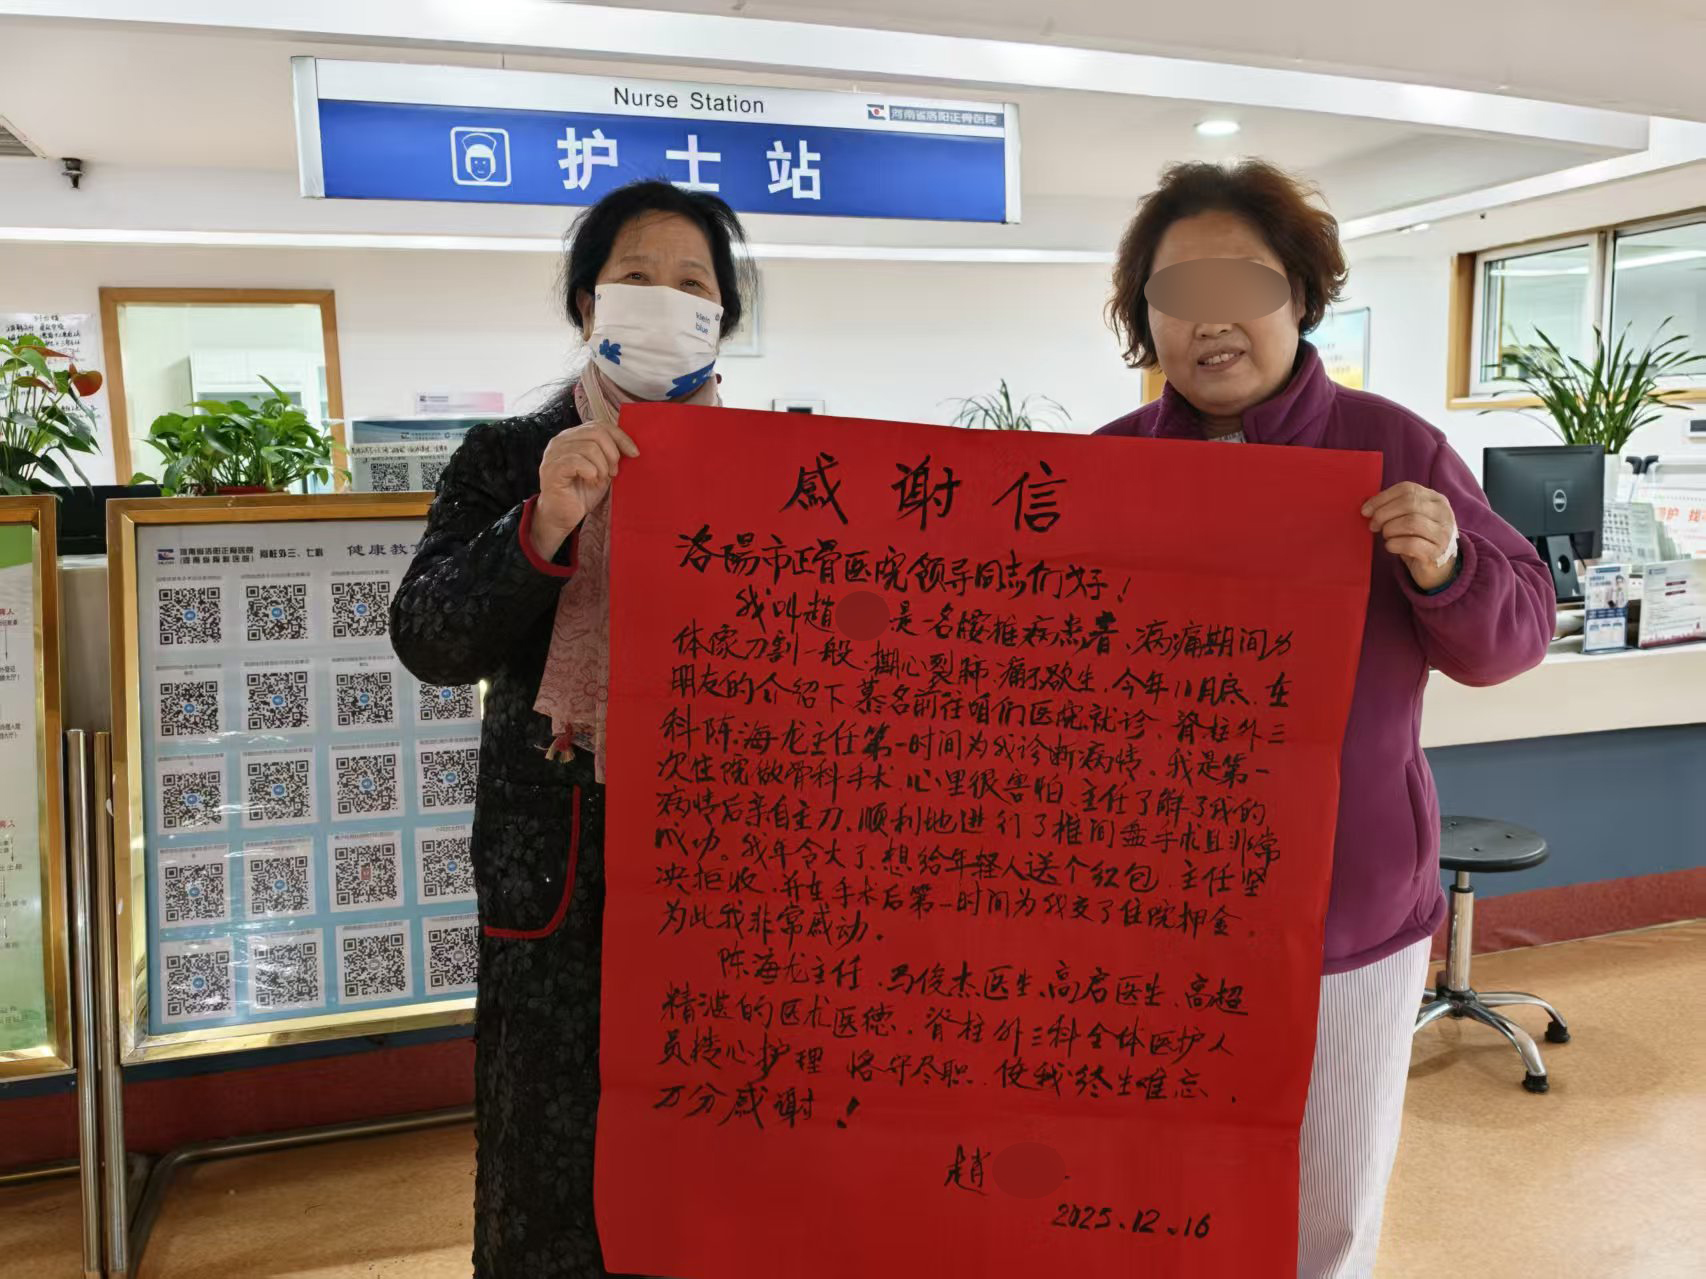 Nurse Station
河南省洛阳正骨医院
护士站
klein
blue
河南省洛阳正骨医院
(河南省骨科医院)
脊柱外三、七科
健康教
DELL
感谢信
洛陽市正骨医院领导同志们好!
我叫趙 是名腰椎病患者、病痛期间身
体像刀割一般、撕心裂肺、痛不欲生，今年11月底，在
朋友的介绍下慕名前往咱们医院就诊，脊柱外三
科陈海龙主任第一时间为我诊断病情，我是第一
次住院做骨科手术，心里很害怕、主任了解了我的
病情后亲自主刀、顺利地进行了椎间盘手术且非常
成功。我年令大了，想给年轻人送个红包，主任坚
决拒收，并在手术后第一时间为我交了住院押金，
为此我非常感动。
陈海龙主任、马俊杰医生、高君医生、高超
精湛的医术医德，脊柱外三科全体医护人
员精心护理 恪守尽职，使我终生难忘，
万分感谢!
趙
2025.12.16